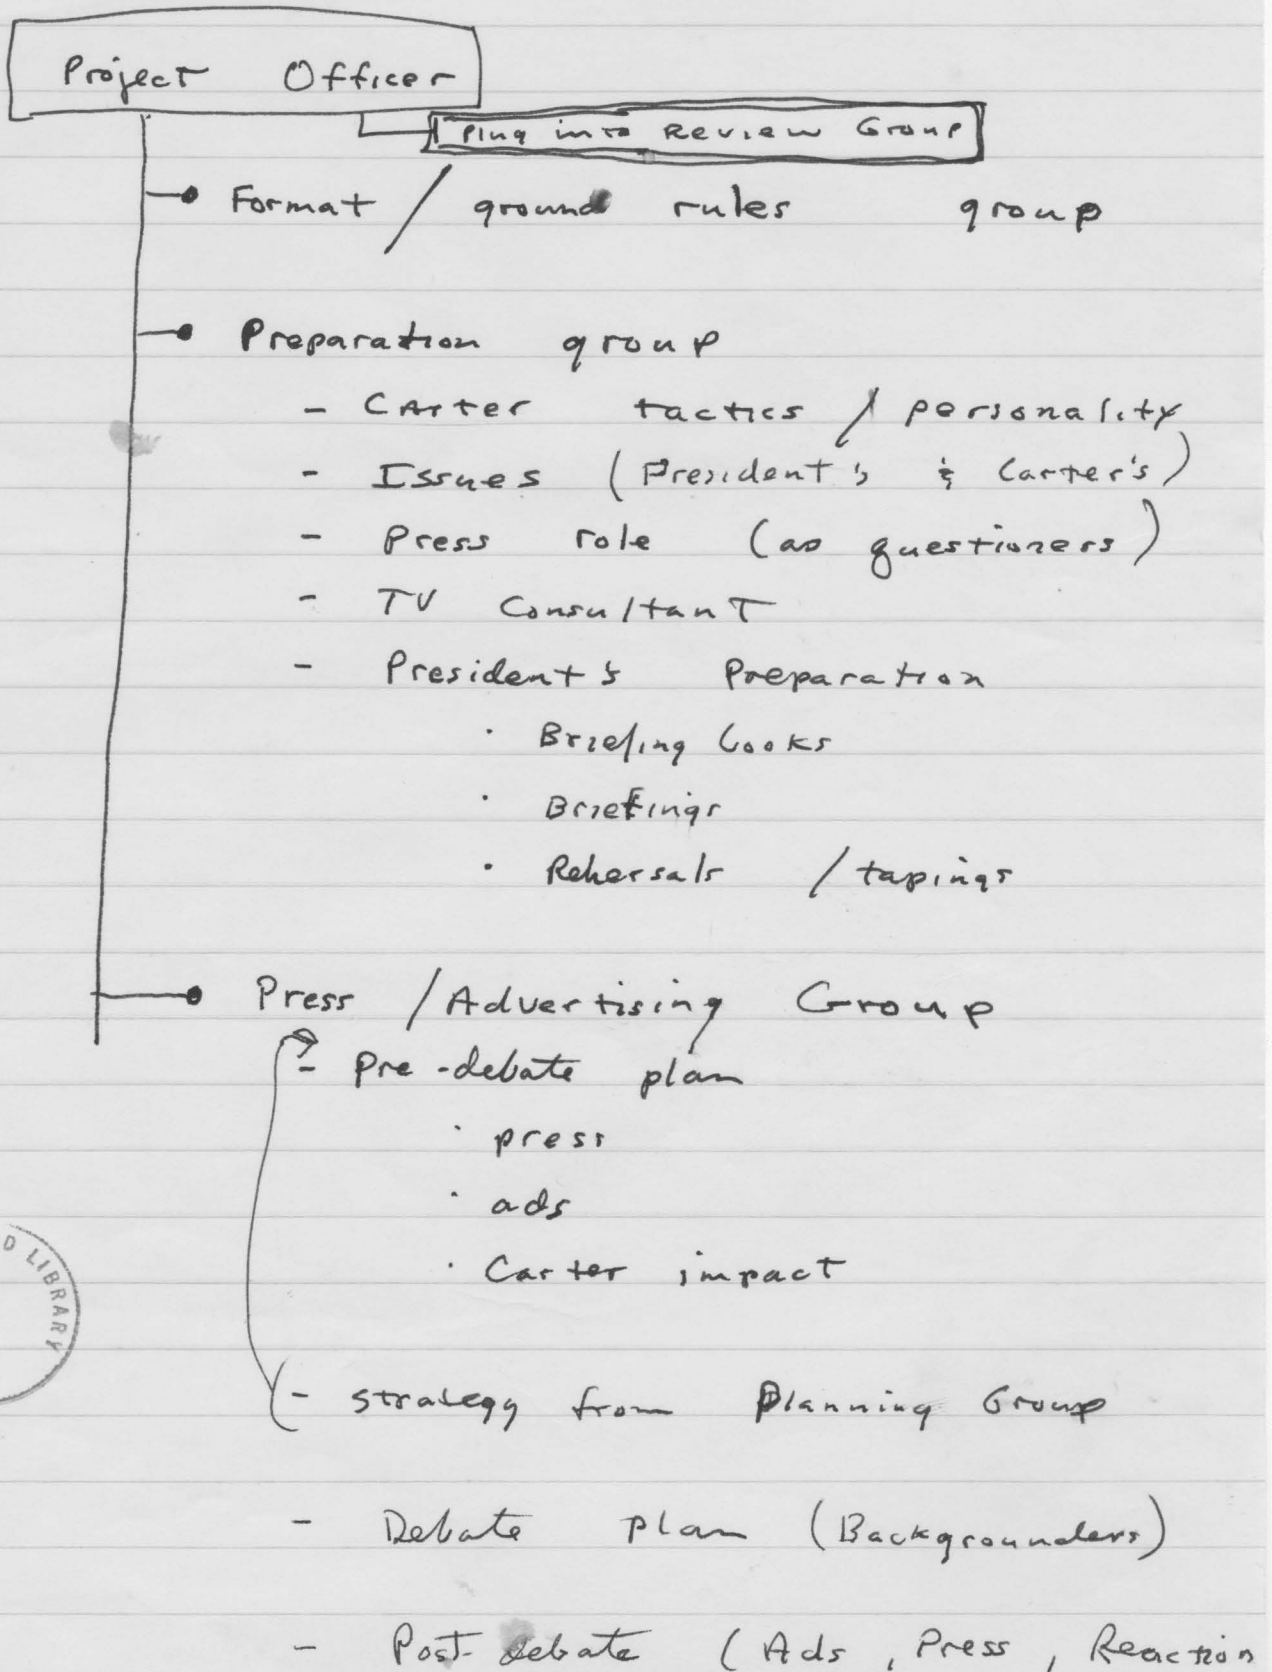 Project Officer
Plug into Review Group
Format / ground rules group
Preparation group
- Carter tactics / personality
- Issues (President's & Carter's)
- Press role (as questioners)
- TV Consultant
- President's Preparation
· Briefing books
· Briefings
· Rehersals / tapings
Press / Advertising Group
- Pre-debate plan
· press
· ads
· Carter impact
(- strategy from Planning Group
- Debate plan (Backgrounders)
- Post-debate (Ads, Press, Reaction
D LIBRARY